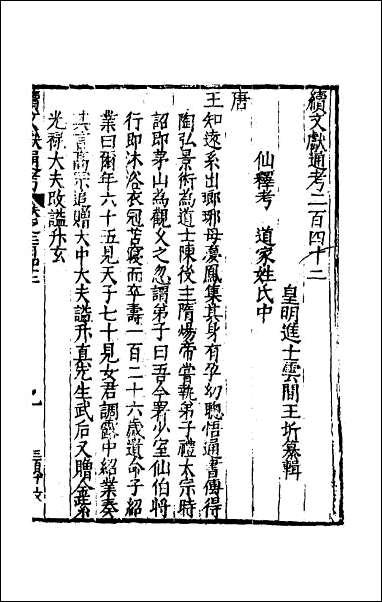 續文獻通考二百四十二
皇明進士雲間王圻纂輯
仙釋考　道家姓氏中
唐
王知遠系出瑯琊母夢鳳集其身有孕幼聰悟通書傳得
陶弘景術為道士陳後主隋煬帝嘗執弟子禮太宗時
詔即茅山為觀父之忽謂弟子曰吾今署少室仙伯將
行即沐浴衣冠苦寢而卒壽一百二十六歲遺命子紹
業曰爾年六十五見天子七十見女君調露中紹業奏
其言高宗追贈大中大夫謚升真先生武后又贈金紫
光祿大夫改謚升玄